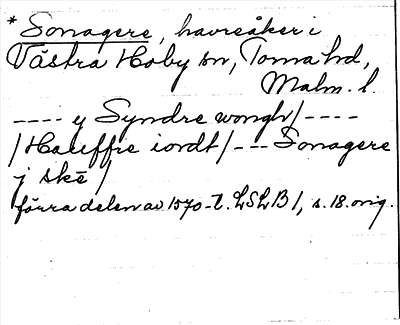 * Sonagere, havreåker i
Västra Hoby sn, Torna hd,
Malm. l.
---- y Syndre wongh/----
/Hauffre iordt/--- Sonagere
j skē /
förra delen av 1570-t. LSLB 1, s. 18. orig.